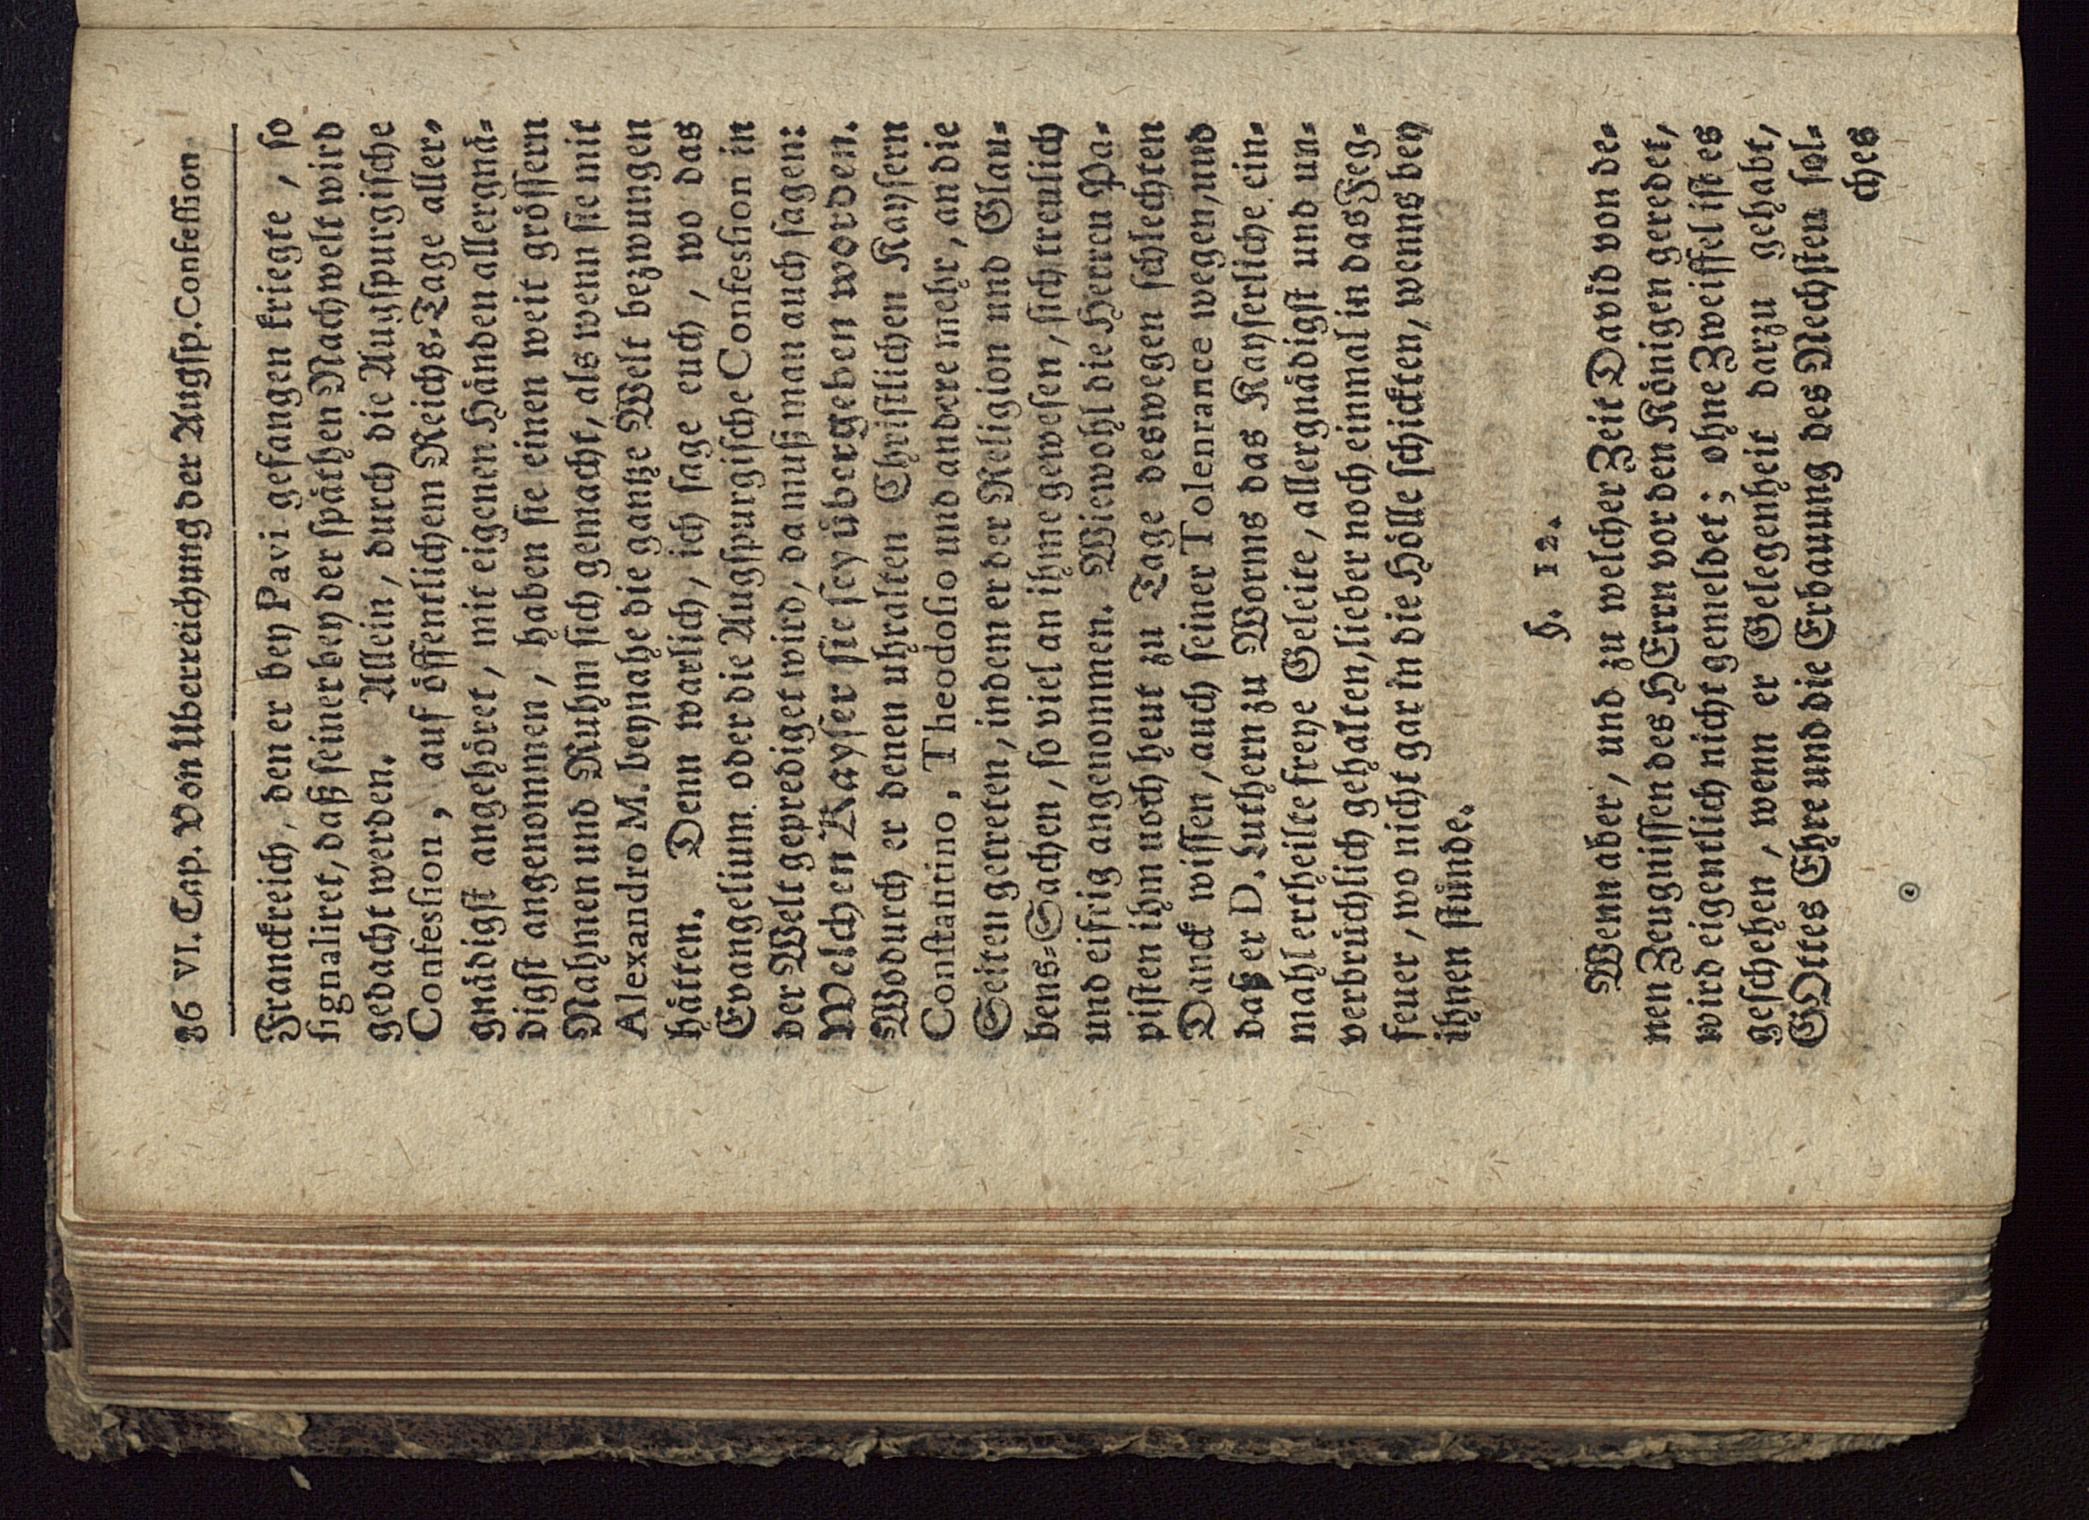 86 VI. Cap. Von Uberreichung der Augsp. Confession
Franckreich, den er bey Pavi gefangen kriegte, so
signaliret, daß seiner bey der späthen Nachwelt wird
gedacht werden. Allein, durch die Augspurgische
Confession, auf öffentlichem Reichs-Tage aller-
gnädigst angehöret, mit eigenen Händen allergnä-
digst angenommen, haben sie einen weit grössern
Nahmen und Ruhm sich gemacht, als wenn sie mit
Alexandro M. beynahe die gantze Welt bezwungen
hätten. Denn warlich, ich sage euch, wo das
Evangelium oder die Augspurgische Confession in
der Welt geprediget wird, da muß man auch sagen:
Welchen Kayser sie sey übergeben worden.
Wodurch er denen uhralten Christlichen Kaysern
Constantino, Theodosio und andere mehr, an die
Seiten getreten, indem er der Religion und Glau-
bens-Sachen, so viel an ihme gewesen, sich treulich
und eifrig angenommen. Wiewohl die Herren Pa-
pisten ihm noch heut zu Tage deswegen schlechten
Danck wissen, auch seiner Tolenrance wegen, und
daß er D. Luthern zu Worms das Kayserliche ein-
mahl ertheilte freye Geleite, allergnädigst und un-
verbrüchlich gehalten, lieber noch einmal in das Feg-
feuer, wo nicht gar in die Hölle schickten, wenns bey
ihnen stünde.
§. 12.
Wenn aber, und zu welcher Zeit David von de-
nen Zeugnissen des HErrn vor den Königen geredet,
wird eigentlich nicht gemeldet; ohne Zweiffel ist es
geschehen, wenn er Gelegenheit darzu gehabt,
GOttes Ehre und die Erbauung des Nechsten sol-
ches